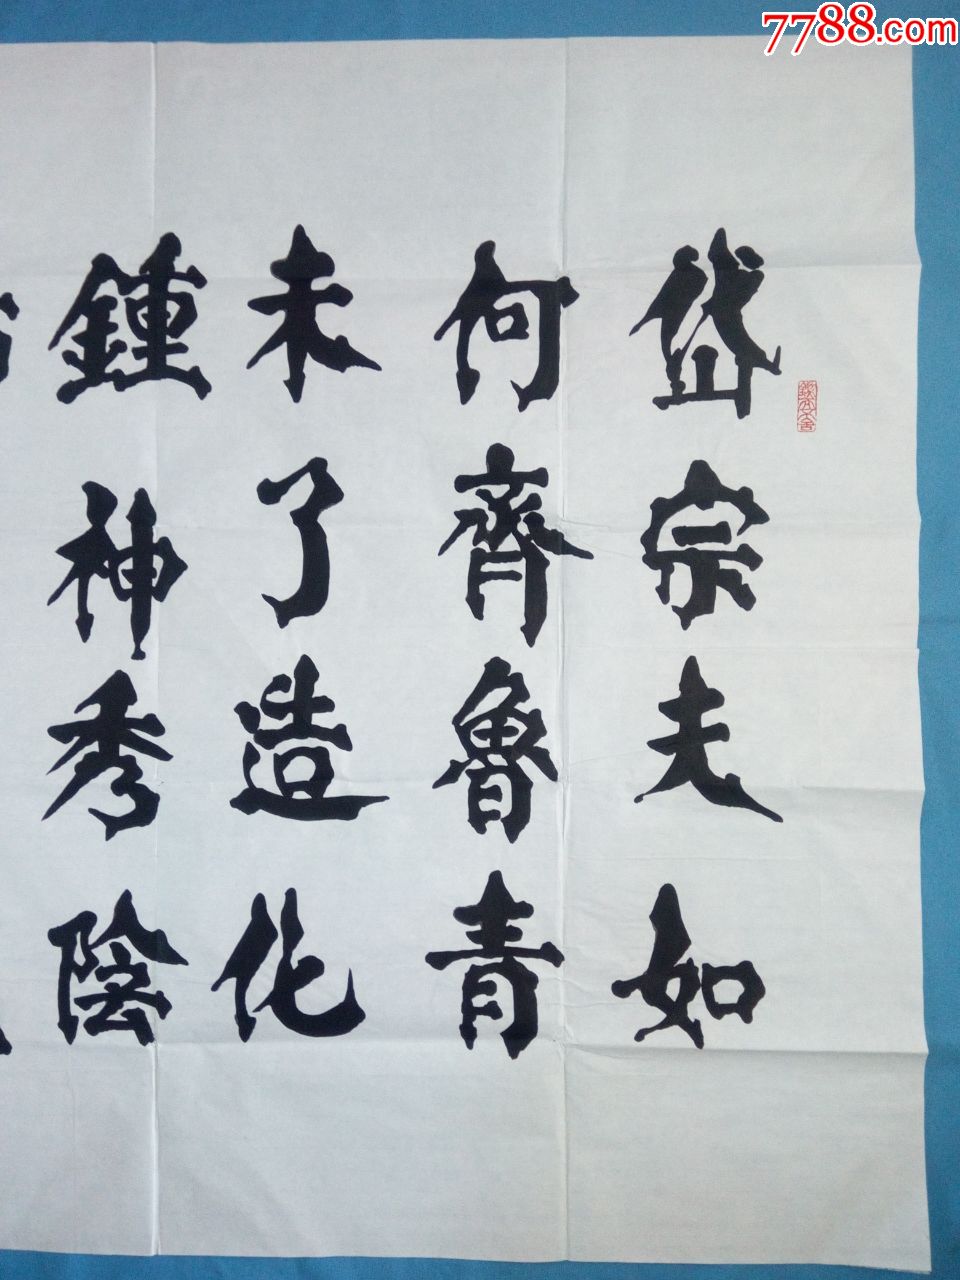 7788.com
岱宗夫如
何齊魯青
未了造化
鍾神秀陰